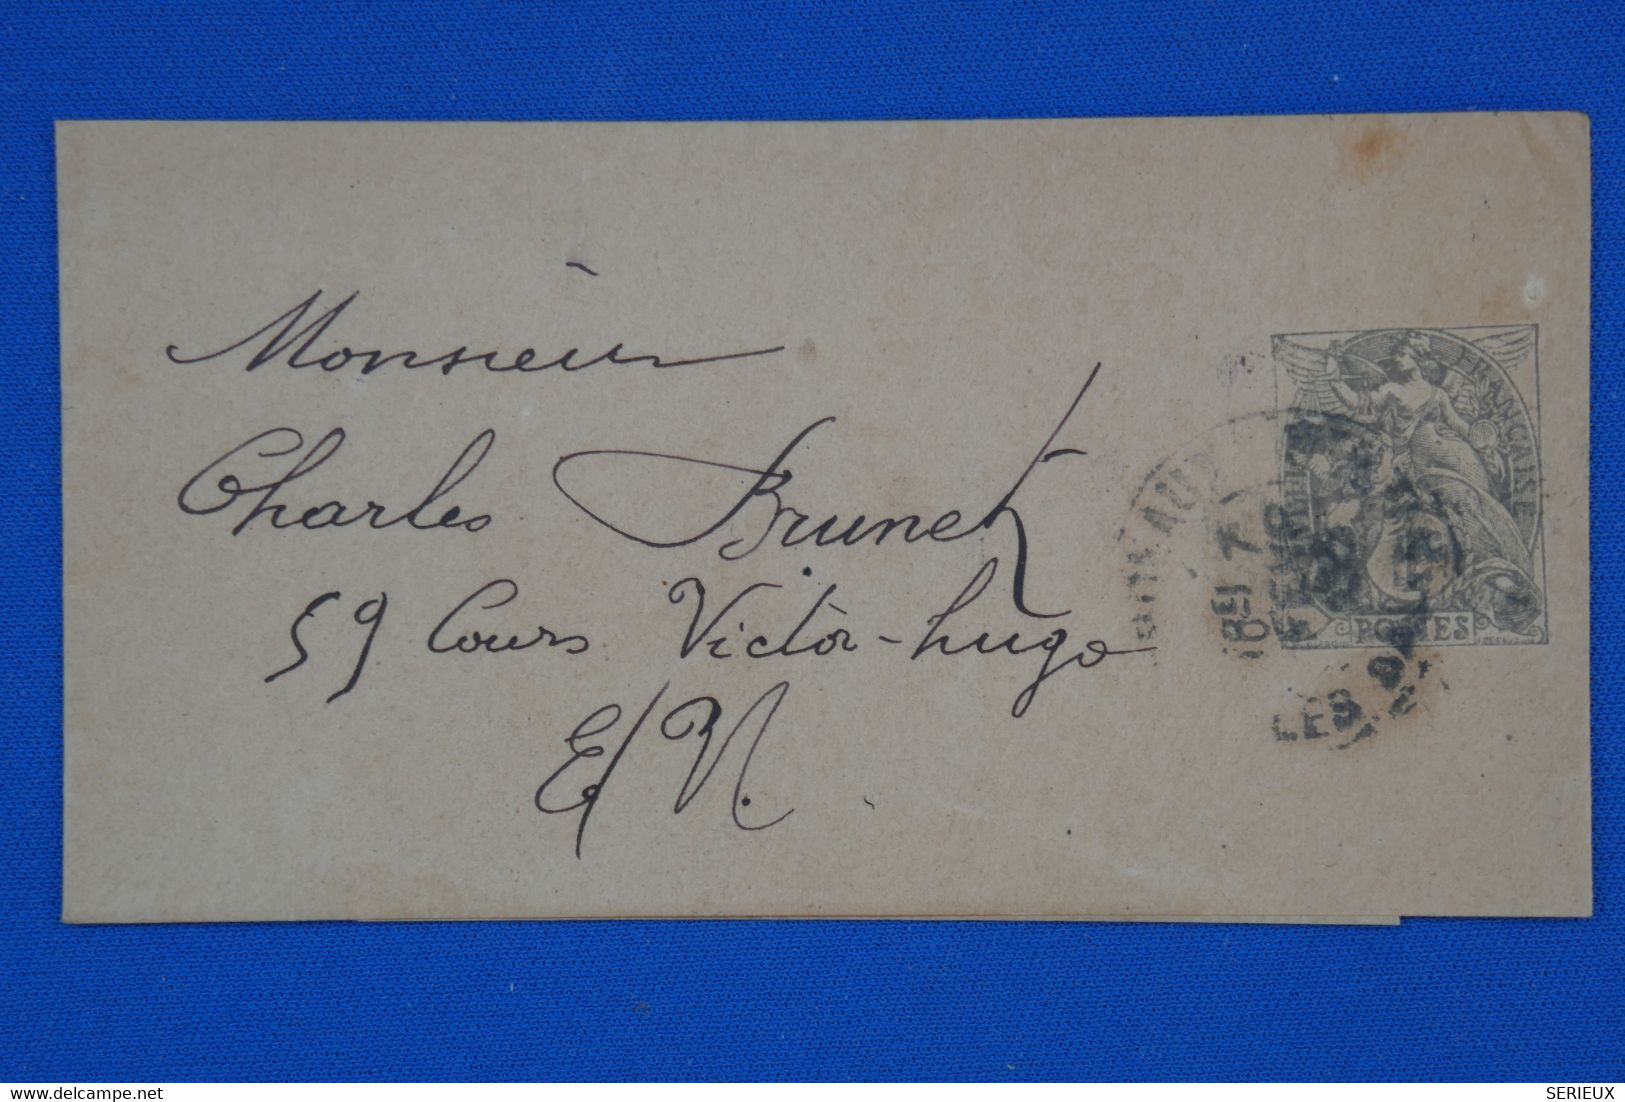 Monsieur
Charles Brunet
59 Cours Victor-hugo
E/N.
FRANÇAISE
POSTES
LES
Delcampe.net
SERIEUX